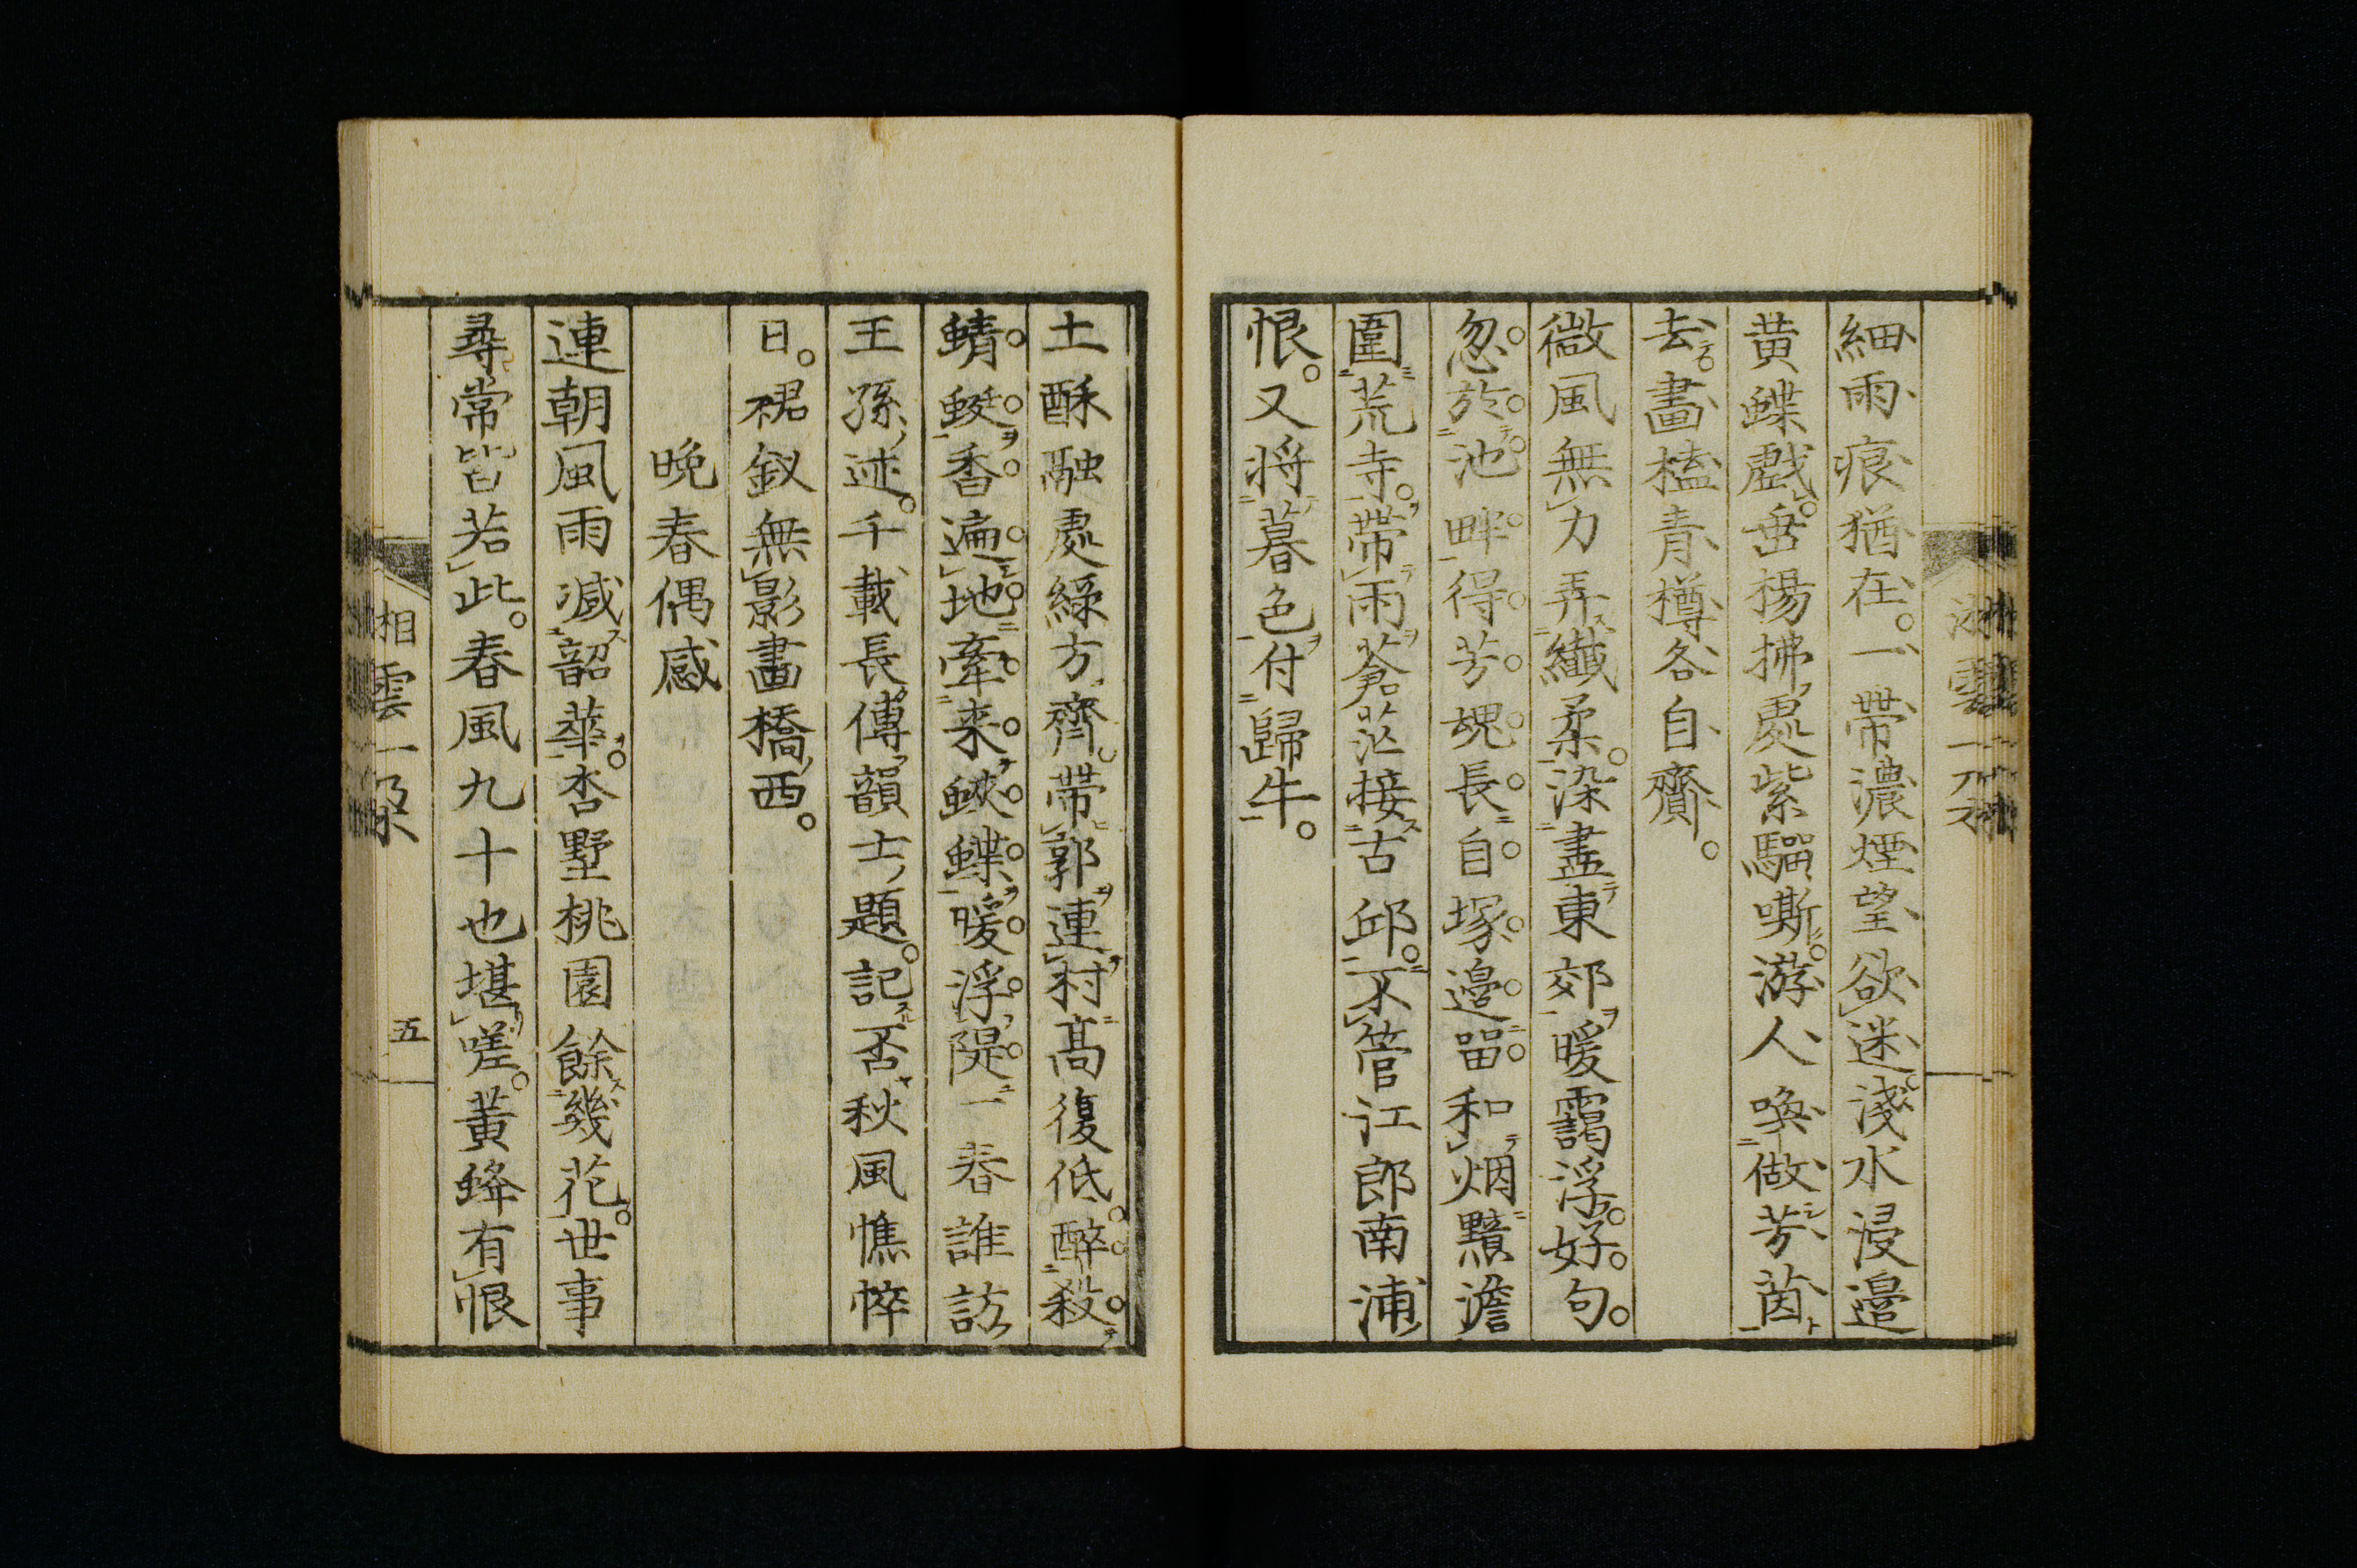 細雨痕猶在。一帶濃煙望欲迷。淺水浸邉
黄蝶戯。垂楊拂處紫騮嘶。游人喚做芳茵
去。畫榼青樽各自齎。
微風無力弄纎柔。染盡東郊暖靄浮。好句。
忽於池畔得。芳媿長自塚邉畱。和烟黯澹
圍荒寺。帶雨蒼茫接古邱。不管江郎南浦
恨。又将暮色付歸牛。
土酥融處緑方齊。帶郭連村髙復低。醉殺
蜻蜓香遍地。牽来蛺蝶暖浮隄。一春誰訪
王孫迹。千載長傳韻士題。記否秋風憔悴
日。裙釵無影畫橋西。
晩春偶感
連朝風雨減韶華。杏墅桃園餘幾花。世事
尋常皆若此。春風九十也堪嗟。黄蜂有恨
相雲一集
五